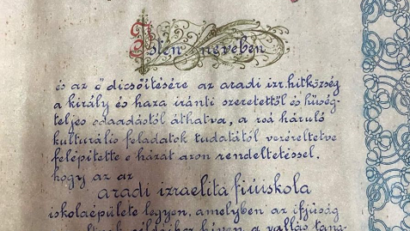 Isten nevében
és az ő dicsőítésére az aradi izr. hitközség
a király és haza iránti szeretettől és hűség-
teljes odaadástól áthatva, a reá háruló
kulturális feladatok tudatától vezéreltetve
felépítette e házat azon rendeltetéssel,
hogy az az
aradi izraelita fiúiskola
iskolaépülete legyen, amelyben az ifjúság
képen a vallás tana-